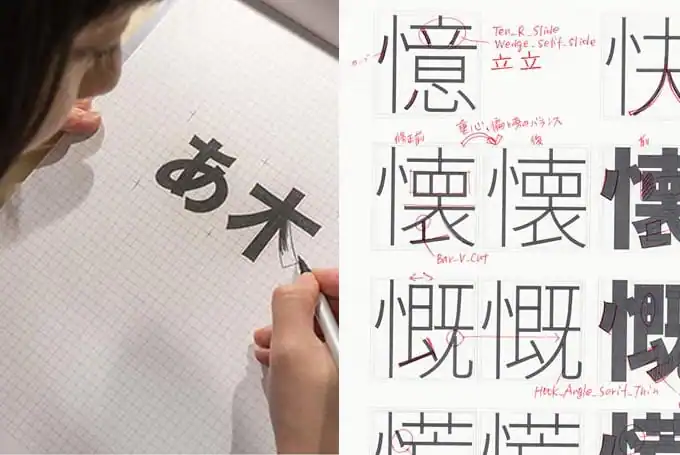 あ木
憶 快
Ten_R_Slide
Wedge_Serif_Slide
立 立
重心、偏と旁のバランス
修正前 後 前
懐 懐 懐
Bar_V_Cut
慨 慨 慨
Hook_Angle_Serif_Thin
慌 慌